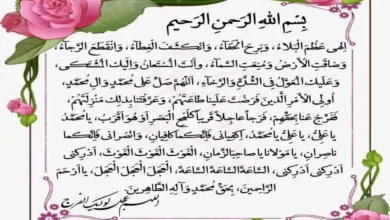 بِسْمِ اللهِ الرَّحْمنِ الرَّحيمِ
اِلهى عَظُمَ الْبَلاءُ، وَبَرِحَ الْخَفاءُ، وَانْكَشَفَ الْغِطاءُ، وَانْقَطَعَ الرَّجاءُ،
وَضاقَتِ الْاَرْضُ وَمُنِعَتِ السَّماءُ، وَاَنْتَ الْمُسْتَعانُ وَاِلَيْكَ الْمُشْتَكى،
وَعَلَيْكَ الْمُعَوَّلُ فِى الشِّدَّةِ وَالرَّخاءِ، اَللّهُمَّ صَلِّ عَلى مُحَمَّدٍ وَالِ مُحَمَّدٍ،
اُولِى الْاَمْرِ الَّذينَ فَرَضْتَ عَلَيْنا طاعَتَهُمْ، وَعَرَّفْتَنا بِذلِكَ مَنْزِلَتَهُمْ،
فَفَرِّجْ عَنّا بِحَقِّهِمْ، فَرَجاً عاجِلاً قَريباً كَلَمْحِ الْبَصَرِ اَوْ هُوَ اَقْرَبُ، يا مُحَمَّدُ
يا عَلِىُّ، يا عَلِىُّ يا مُحَمَّدُ، اِكْفِيانى فَاِنَّكُما كافِيانِ، وَانْصُرانى فَاِنَّكُما
ناصِرانِ، يا مَوْلانا يا صاحِبَ الزَّمانِ، الْغَوْثَ الْغَوْثَ الْغَوْثَ، اَدْرِكْنى
اَدْرِكْنى اَدْرِكْنى، السّاعَةَ السّاعَةَ السّاعَةَ، الْعَجَلَ الْعَجَلَ الْعَجَلَ، يا اَرْحَمَ
الرّاحِمينَ، بِحَقِّ مُحَمَّدٍ وَآلِهِ الطّاهِرينَ.
اللهم عجل لوليك الفرج